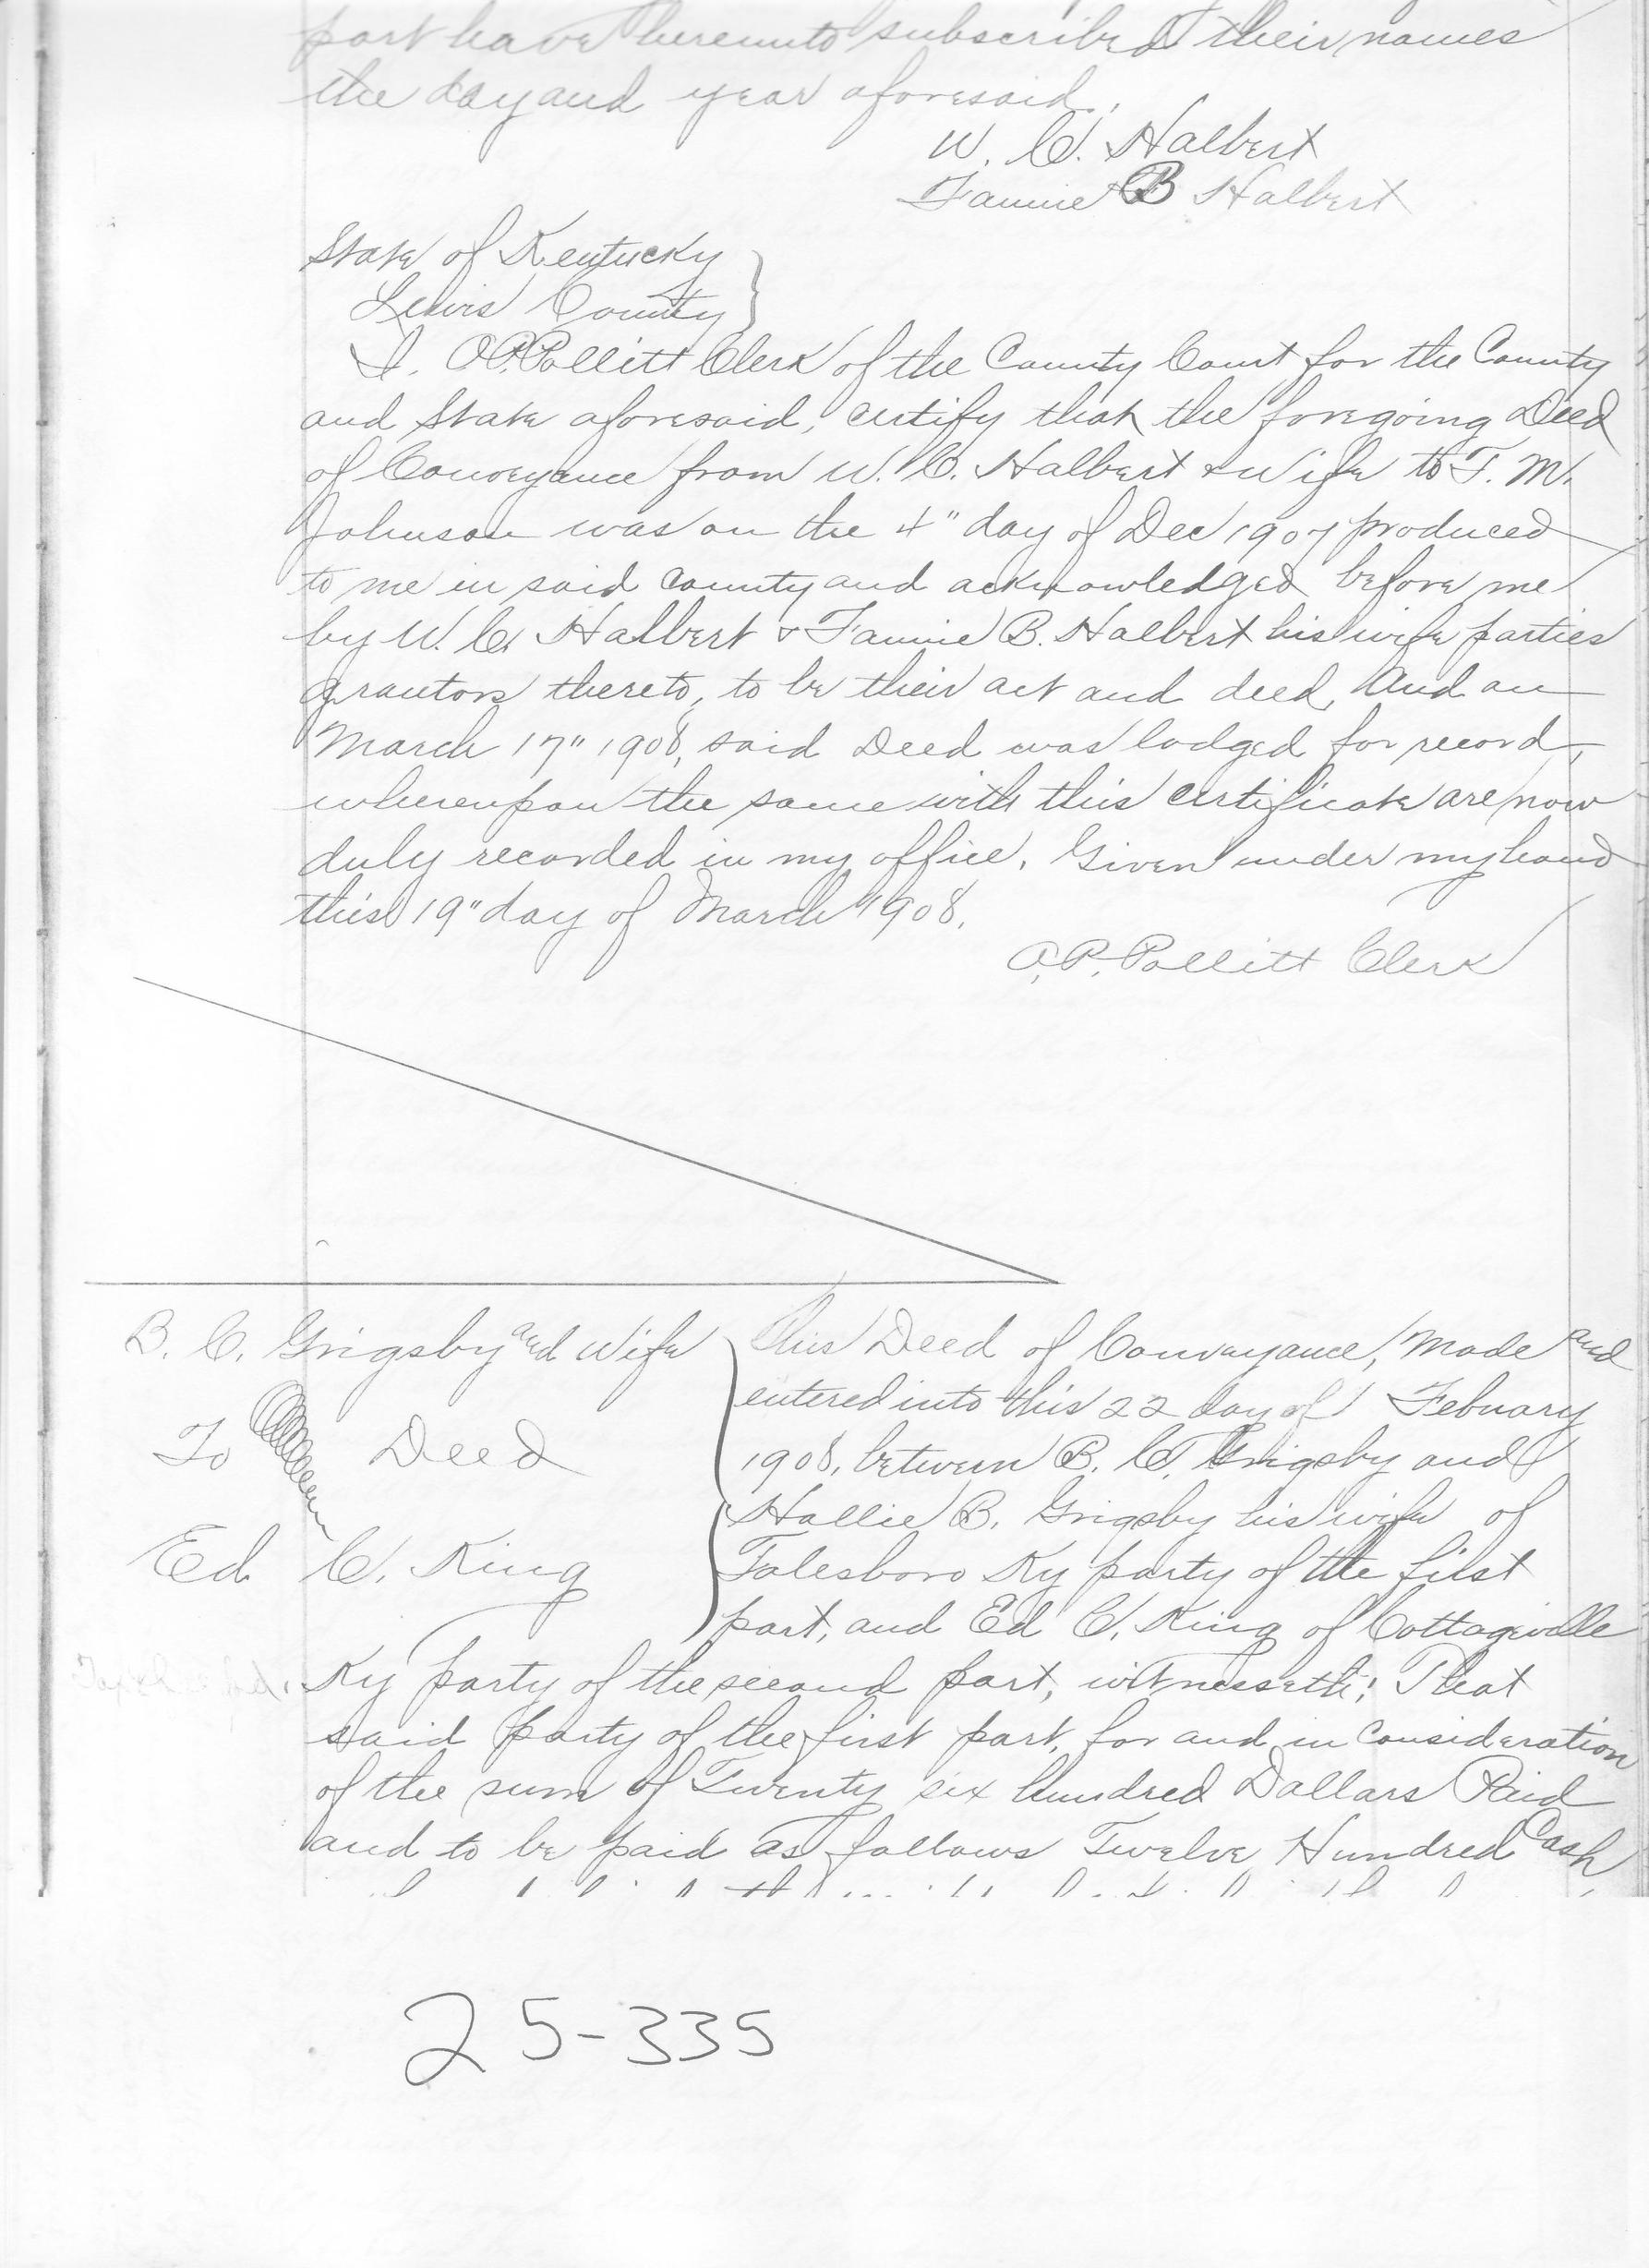 part have hereunto subscribed their names
the day and year aforesaid.
W. C. Halbert
Fannie B Halbert
State of Kentucky
Lewis County
I. O.P. Pollitt Clerk of the County Court for the County
and State aforesaid, certify that the foregoing Deed
of Conveyance from W. C. Halbert & Wife to T. M.
Johnson was on the 4" day of Dec 1907 produced
to me in said County and acknowledged before me
by W. C. Halbert & Fannie B. Halbert his wife parties
grantors thereto, to be their act and deed, And on
March 17" 1908, said Deed was lodged for record,
whereupon the same with this certificate are now
duly recorded in my office. Given under my hand
this 19" day of March 1908.
O.P. Pollitt Clerk
B. C. Grigsby and Wife
To Deed
Ed C. King
This Deed of Conveyance, Made and
entered into this 22 day of Febuary
1908, between B. C. Grigsby and
Hallie B. Grigsby his wife of
Tolesboro Ky party of the first
part, and Ed C. King of Cottageville
Ky party of the second part, witnesseth: That
said party of the first part, for and in Consideration
of the sum of Twenty six hundred Dollars Paid
and to be paid as follows Twelve Hundred Cash
25-335